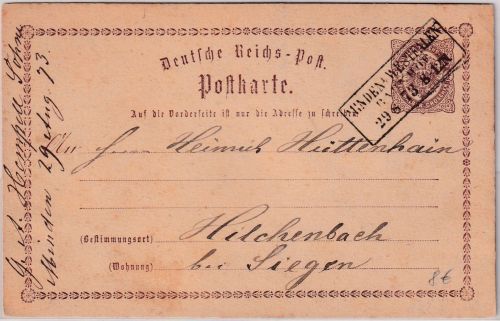 Deutsche Reichs-Post.
Postkarte.
Auf die Vorderseite ist nur die Adresse zu schreiben
MINDEN WESTFALEN
BA
29 8 73 8-12
An
Herrn Heinrich Hüttenhain
(Bestimmungsort) Hilchenbach
(Wohnung) bei Siegen
8€
Minden 29 Aug 73